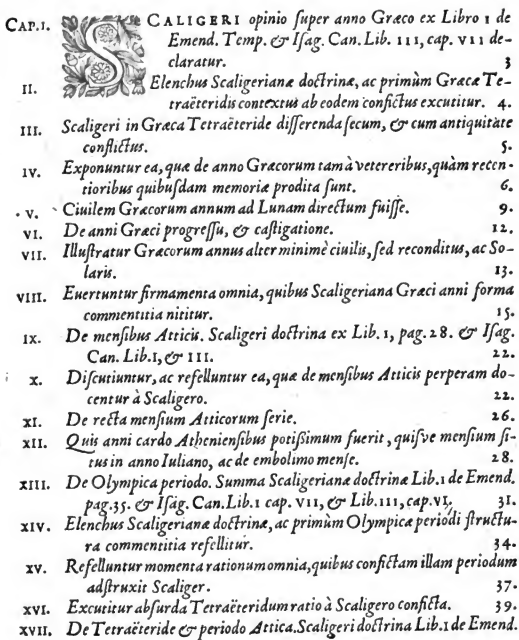 CAP.I. SCALIGERI opinio ſuper anno Græco ex Libro 1 de
Emend. Temp. & Iſag. Can. Lib. III, cap. VII de-
claratur. 3
II. Elenchus Scaligerianæ doctrinæ, ac primùm Græcæ Te-
traëteridis contextus ab eodem confictus excutitur. 4.
III. Scaligeri in Græca Tetraëteride differenda ſecum, & cum antiquitate
conflictus. 5.
IV. Exponuntur ea, quæ de anno Græcorum tam à vetereribus, quàm recen-
tioribus quibuſdam memoriæ prodita ſunt. 6.
V. Ciuilem Græcorum annum ad Lunam directum fuiſſe. 9.
VI. De anni Græci progreſſu, & caſtigatione. 12.
VII. Illuſtratur Græcorum annus alter minimè ciuilis, ſed reconditus, ac So-
laris. 13.
VIII. Euertuntur firmamenta omnia, quibus Scaligeriana Græci anni forma
commentitia nititur. 15.
IX. De menſibus Atticis. Scaligeri doctrina ex Lib. 1, pag. 28. & Iſag.
Can. Lib.I, & III. 22.
X. Diſcutiuntur, ac refelluntur ea, quæ de menſibus Atticis perperam do-
centur à Scaligero. 22.
XI. De recta menſium Atticorum ſerie. 26.
XII. Quis anni cardo Athenienſibus potiſſimum fuerit, quiſve menſium ſi-
tus in anno Iuliano, ac de embolimo menſe. 28.
XIII. De Olympica periodo. Summa Scaligerianæ doctrinæ Lib.1 de Emend.
pag.35. & Iſag. Can. Lib.1 cap. VII, & Lib.III, cap.VI. 31.
XIV. Elenchus Scaligerianæ doctrinæ, ac primùm Olympicæ periodi ſtructu-
ra commentitia refellitur. 34.
XV. Refelluntur momenta rationum omnia, quibus confictam illam periodum
adſtruxit Scaliger. 37.
XVI. Excutitur abſurda Tetraëteridum ratio à Scaligero conficta. 39.
XVII. De Tetraëteride & periodo Attica. Scaligeri doctrina Lib.1 de Emend.